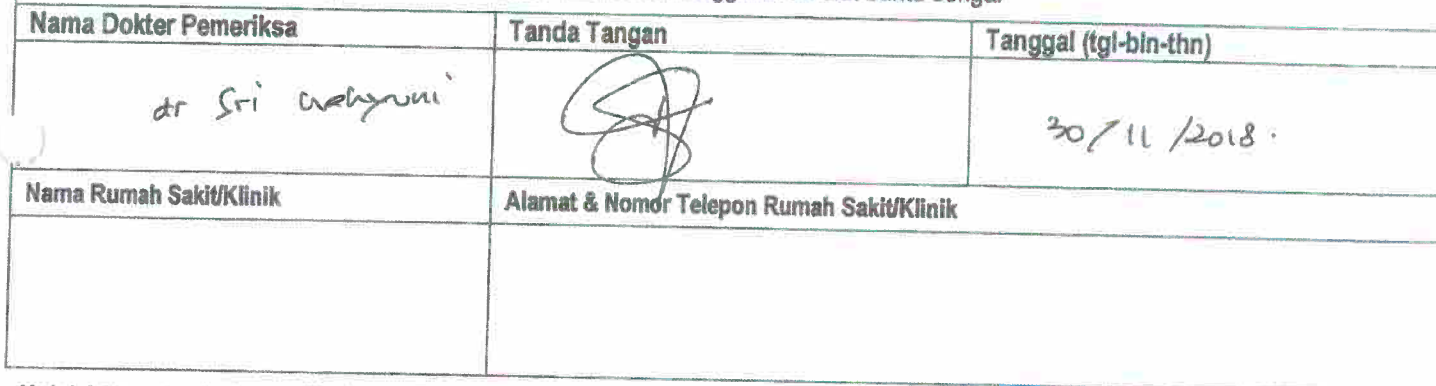 Nama Dokter Pemeriksa Tanda Tangan Tanggal (tgl-bln-thn)
dr Sri Wahyuni 30/11/2018.
Nama Rumah Sakit/Klinik Alamat & Nomor Telepon Rumah Sakit/Klinik